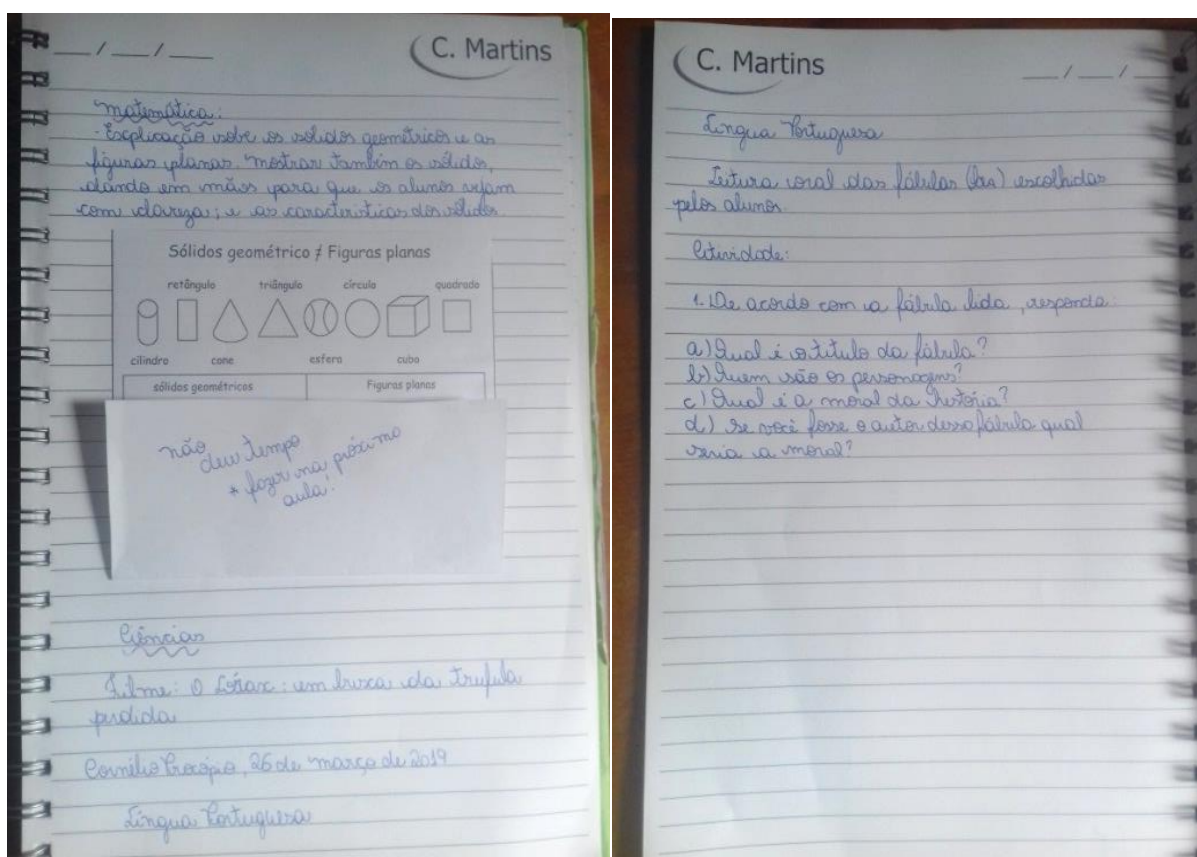 __/__/__
C. Martins
Matemática:
- Explicação sobre os sólidos geométricos e as
figuras planas. Mostrar também os sólidos,
dando em mãos para que os alunos vejam
com clareza; e as caracteristicas dos sólidos.
Sólidos geométrico ≠ Figuras planas
retângulo triângulo círculo quadrado
cilindro cone esfera cubo
sólidos geométricos Figuras planas
não
deu tempo
* fazer na próxima
aula!
Ciências
Filme: O Lórax: em busca da trufula
perdida
Cornélio Procópio, 26 de março de 2019
Língua Portuguesa
C. Martins
__/__/__
Língua Portuguesa
Leitura oral das fábulas escolhidas
pelos alunos.
Atividade:
1. De acordo com a fábula lida, responda:
a) Qual é o título da fábula?
b) Quem são os personagens?
c) Qual é a moral da história?
d) Se você fosse o autor dessa fábula qual
seria a moral?